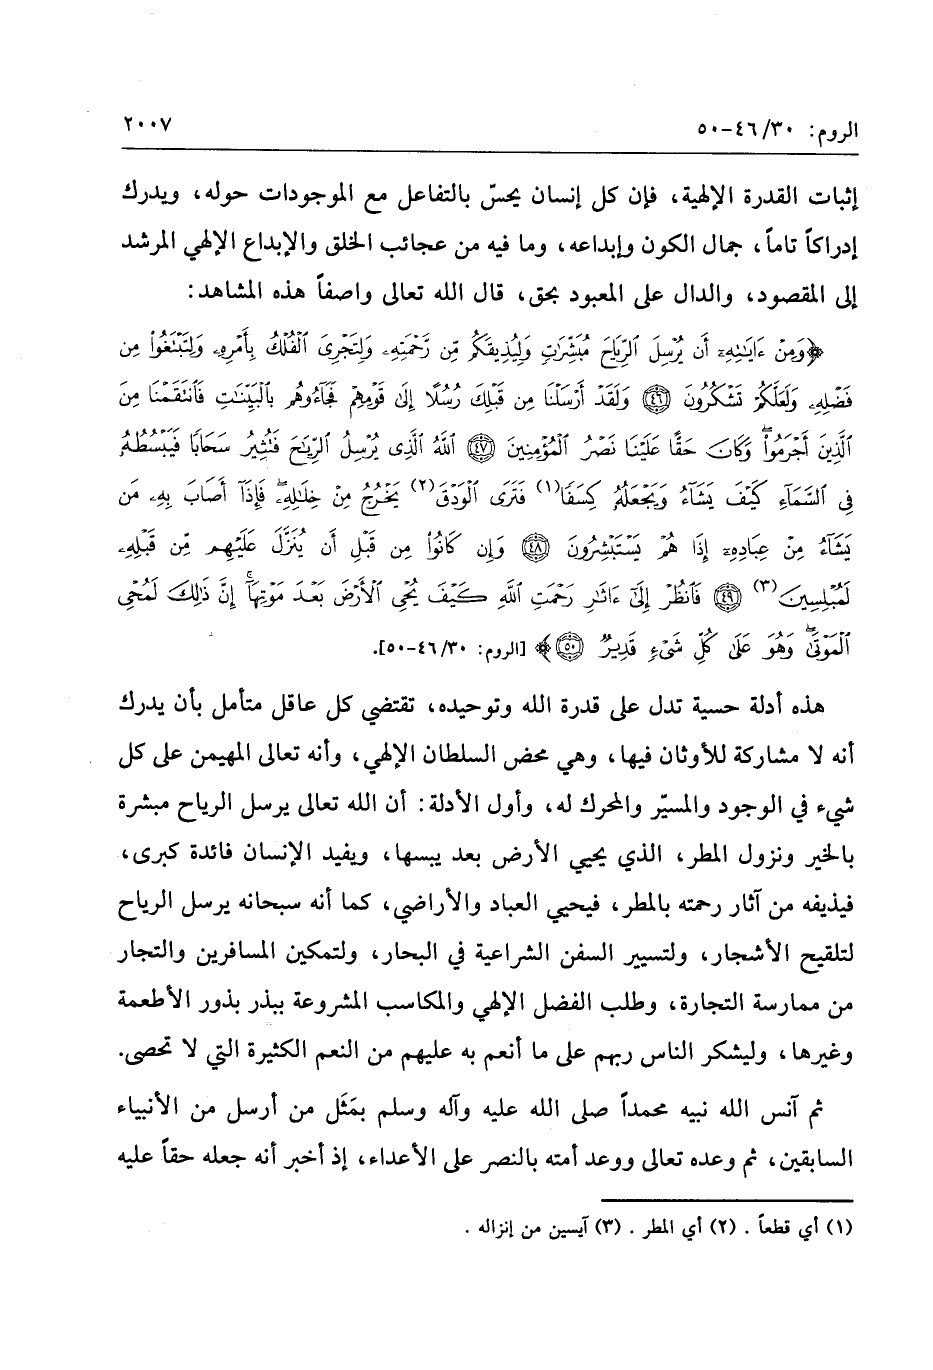 الروم: ٤٦/٣٠-٥٠ ٢٠٠٧
إثبات القدرة الإلهية، فإن كل إنسان يحسّ بالتفاعل مع الموجودات حوله، ويدرك
إدراكاً تاماً، جمال الكون وإبداعه، وما فيه من عجائب الخلق والإبداع الإلهي المرشد
إلى المقصود، والدال على المعبود بحق، قال الله تعالى واصفاً هذه المشاهد:
﴿وَمِنْ ءَايَٰتِهِۦٓ أَن يُرْسِلَ ٱلرِّيَاحَ مُبَشِّرَٰتٍ وَلِيُذِيقَكُم مِّن رَّحْمَتِهِۦ وَلِتَجْرِىَ ٱلْفُلْكُ بِأَمْرِهِۦ وَلِتَبْتَغُوا۟ مِن
فَضْلِهِۦ وَلَعَلَّكُمْ تَشْكُرُونَ ۝٤٦ وَلَقَدْ أَرْسَلْنَا مِن قَبْلِكَ رُسُلًا إِلَىٰ قَوْمِهِمْ فَجَآءُوهُم بِٱلْبَيِّنَٰتِ فَٱنتَقَمْنَا مِنَ
ٱلَّذِينَ أَجْرَمُوا۟ ۖ وَكَانَ حَقًّا عَلَيْنَا نَصْرُ ٱلْمُؤْمِنِينَ ۝٤٧ ٱللَّهُ ٱلَّذِى يُرْسِلُ ٱلرِّيَٰحَ فَتُثِيرُ سَحَابًا فَيَبْسُطُهُۥ
فِى ٱلسَّمَآءِ كَيْفَ يَشَآءُ وَيَجْعَلُهُۥ كِسَفًا(١) فَتَرَى ٱلْوَدْقَ(٢) يَخْرُجُ مِنْ خِلَٰلِهِۦ ۖ فَإِذَآ أَصَابَ بِهِۦ مَن
يَشَآءُ مِنْ عِبَادِهِۦٓ إِذَا هُمْ يَسْتَبْشِرُونَ ۝٤٨ وَإِن كَانُوا۟ مِن قَبْلِ أَن يُنَزَّلَ عَلَيْهِم مِّن قَبْلِهِۦ
لَمُبْلِسِينَ(٣) ۝٤٩ فَٱنظُرْ إِلَىٰٓ ءَاثَٰرِ رَحْمَتِ ٱللَّهِ كَيْفَ يُحْىِ ٱلْأَرْضَ بَعْدَ مَوْتِهَآ ۚ إِنَّ ذَٰلِكَ لَمُحْىِ
ٱلْمَوْتَىٰ ۖ وَهُوَ عَلَىٰ كُلِّ شَىْءٍ قَدِيرٌ ۝٥٠﴾ [الروم: ٤٦/٣٠-٥٠].
هذه أدلة حسية تدل على قدرة الله وتوحيده، تقتضي كل عاقل متأمل بأن يدرك
أنه لا مشاركة للأوثان فيها، وهي محض السلطان الإلهي، وأنه تعالى المهيمن على كل
شيء في الوجود والمسيّر والمحرك له، وأول الأدلة: أن الله تعالى يرسل الرياح مبشرة
بالخير ونزول المطر، الذي يحيي الأرض بعد يبسها، ويفيد الإنسان فائدة كبرى،
فيذيقه من آثار رحمته بالمطر، فيحيي العباد والأراضي، كما أنه سبحانه يرسل الرياح
لتلقيح الأشجار، ولتسيير السفن الشراعية في البحار، ولتمكين المسافرين والتجار
من ممارسة التجارة، وطلب الفضل الإلهي والمكاسب المشروعة ببذر بذور الأطعمة
وغيرها، وليشكر الناس ربهم على ما أنعم به عليهم من النعم الكثيرة التي لا تحصى.
ثم آنس الله نبيه محمداً صلى الله عليه وآله وسلم بمَثَل من أرسل من الأنبياء
السابقين، ثم وعده تعالى ووعد أمته بالنصر على الأعداء، إذ أخبر أنه جعله حقاً عليه
(١) أي قطعاً. (٢) أي المطر. (٣) آيسين من إنزاله.